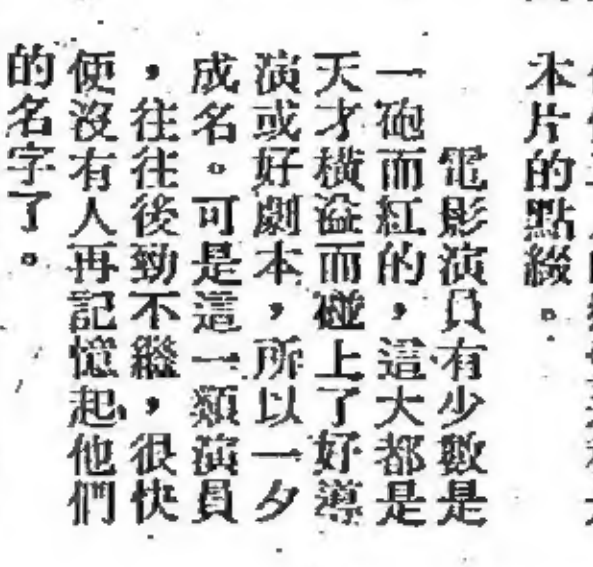 本片的點綴。
電影演員有少數是
一砲而紅的，這大都是
天才橫溢而碰上了好導
演或好劇本，所以一夕
成名。可是這一類演員
，往往後勁不繼，很快
便沒有人再記憶起他們
的名字了。